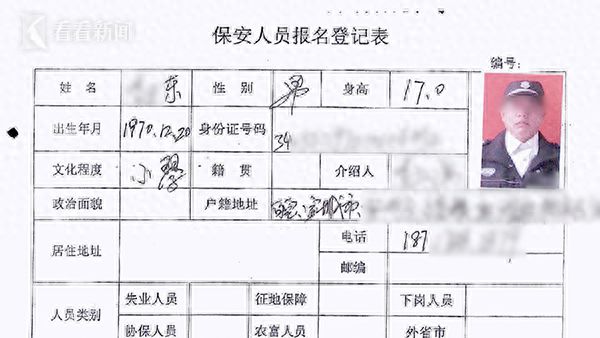 看看新闻
保安人员报名登记表
编号:
姓名 东 性别 男 身高 17.0
出生年月 1970.12.20 身份证号码 34
文化程度 小学 籍贯 介绍人
政治面貌 户籍地址
居住地址 电话 187
邮编
人员类别 失业人员 征地保障 下岗人员
协保人员 农富人员 外省市